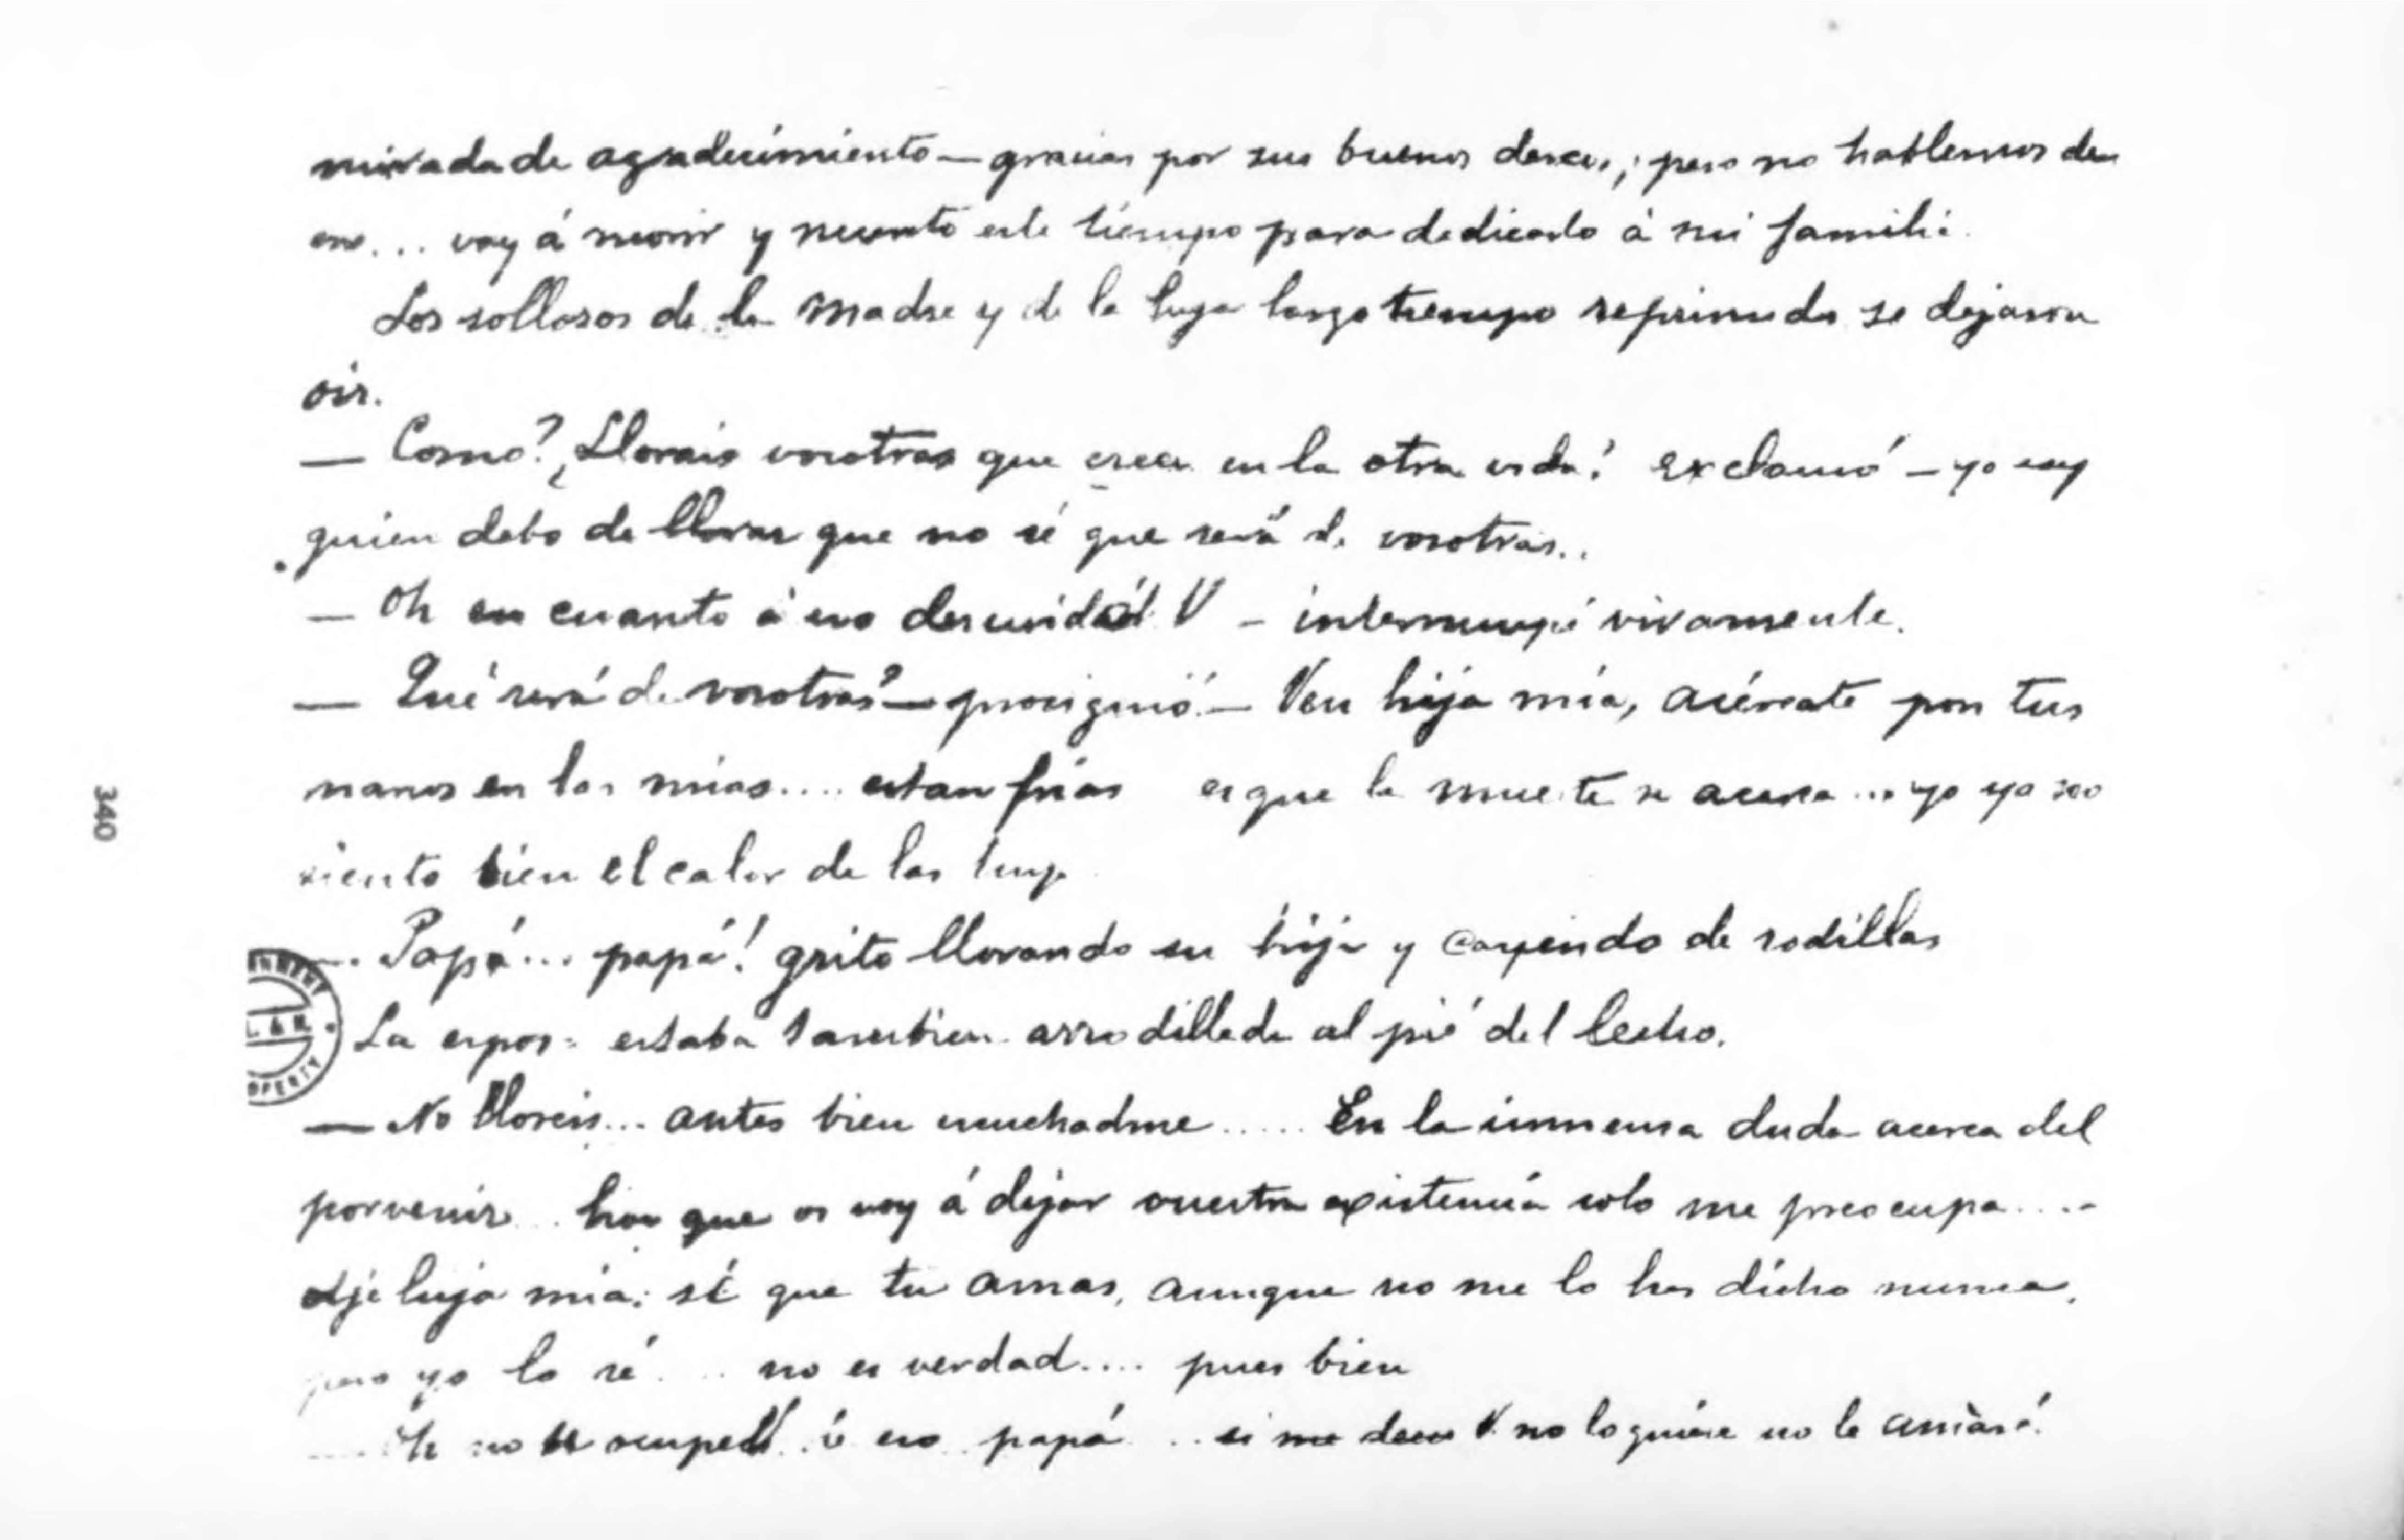 mirada de agradecimiento — gracias por sus buenos deseos; pero no hablemos de
eso... voy á morir y necesito este tiempo para dedicarlo á mi familia.
Los sollosos de la madre y de la hija largo tiempo reprimidos se dejaron
oir.
— Como? ¿Llorais vosotras que creeis en la otra vida? exclamó — yo soy
quien debo de llorar que no sé que será de vosotras..
— Oh en cuanto á eso descuide V — interrumpí vivamente.
— Qué será de vosotras? — prosiguió. — Ven hija mía, acércate pon tus
manos en las mias.... estan frías es que la muerte se acerca ... yo ya no
siento bien el calor de las tuyas
— Papá... papá! grito llorando su hija y cayendo de rodillas
La esposa estaba tambien arrodillada al pié del lecho.
— No lloreis... antes bien escuchadme ..... En la inmensa duda acerca del
porvenir .. hoy que os voy á dejar vuestra existencia solo me preocupa.....
hija mía: sé que tu amas, aunque no me lo has dicho nunca,
pero yo lo sé .... no es verdad.... pues bien
— Oh no se ocupe V. de eso papá ... si V. no lo quiere no le amaré!
340
L & H.